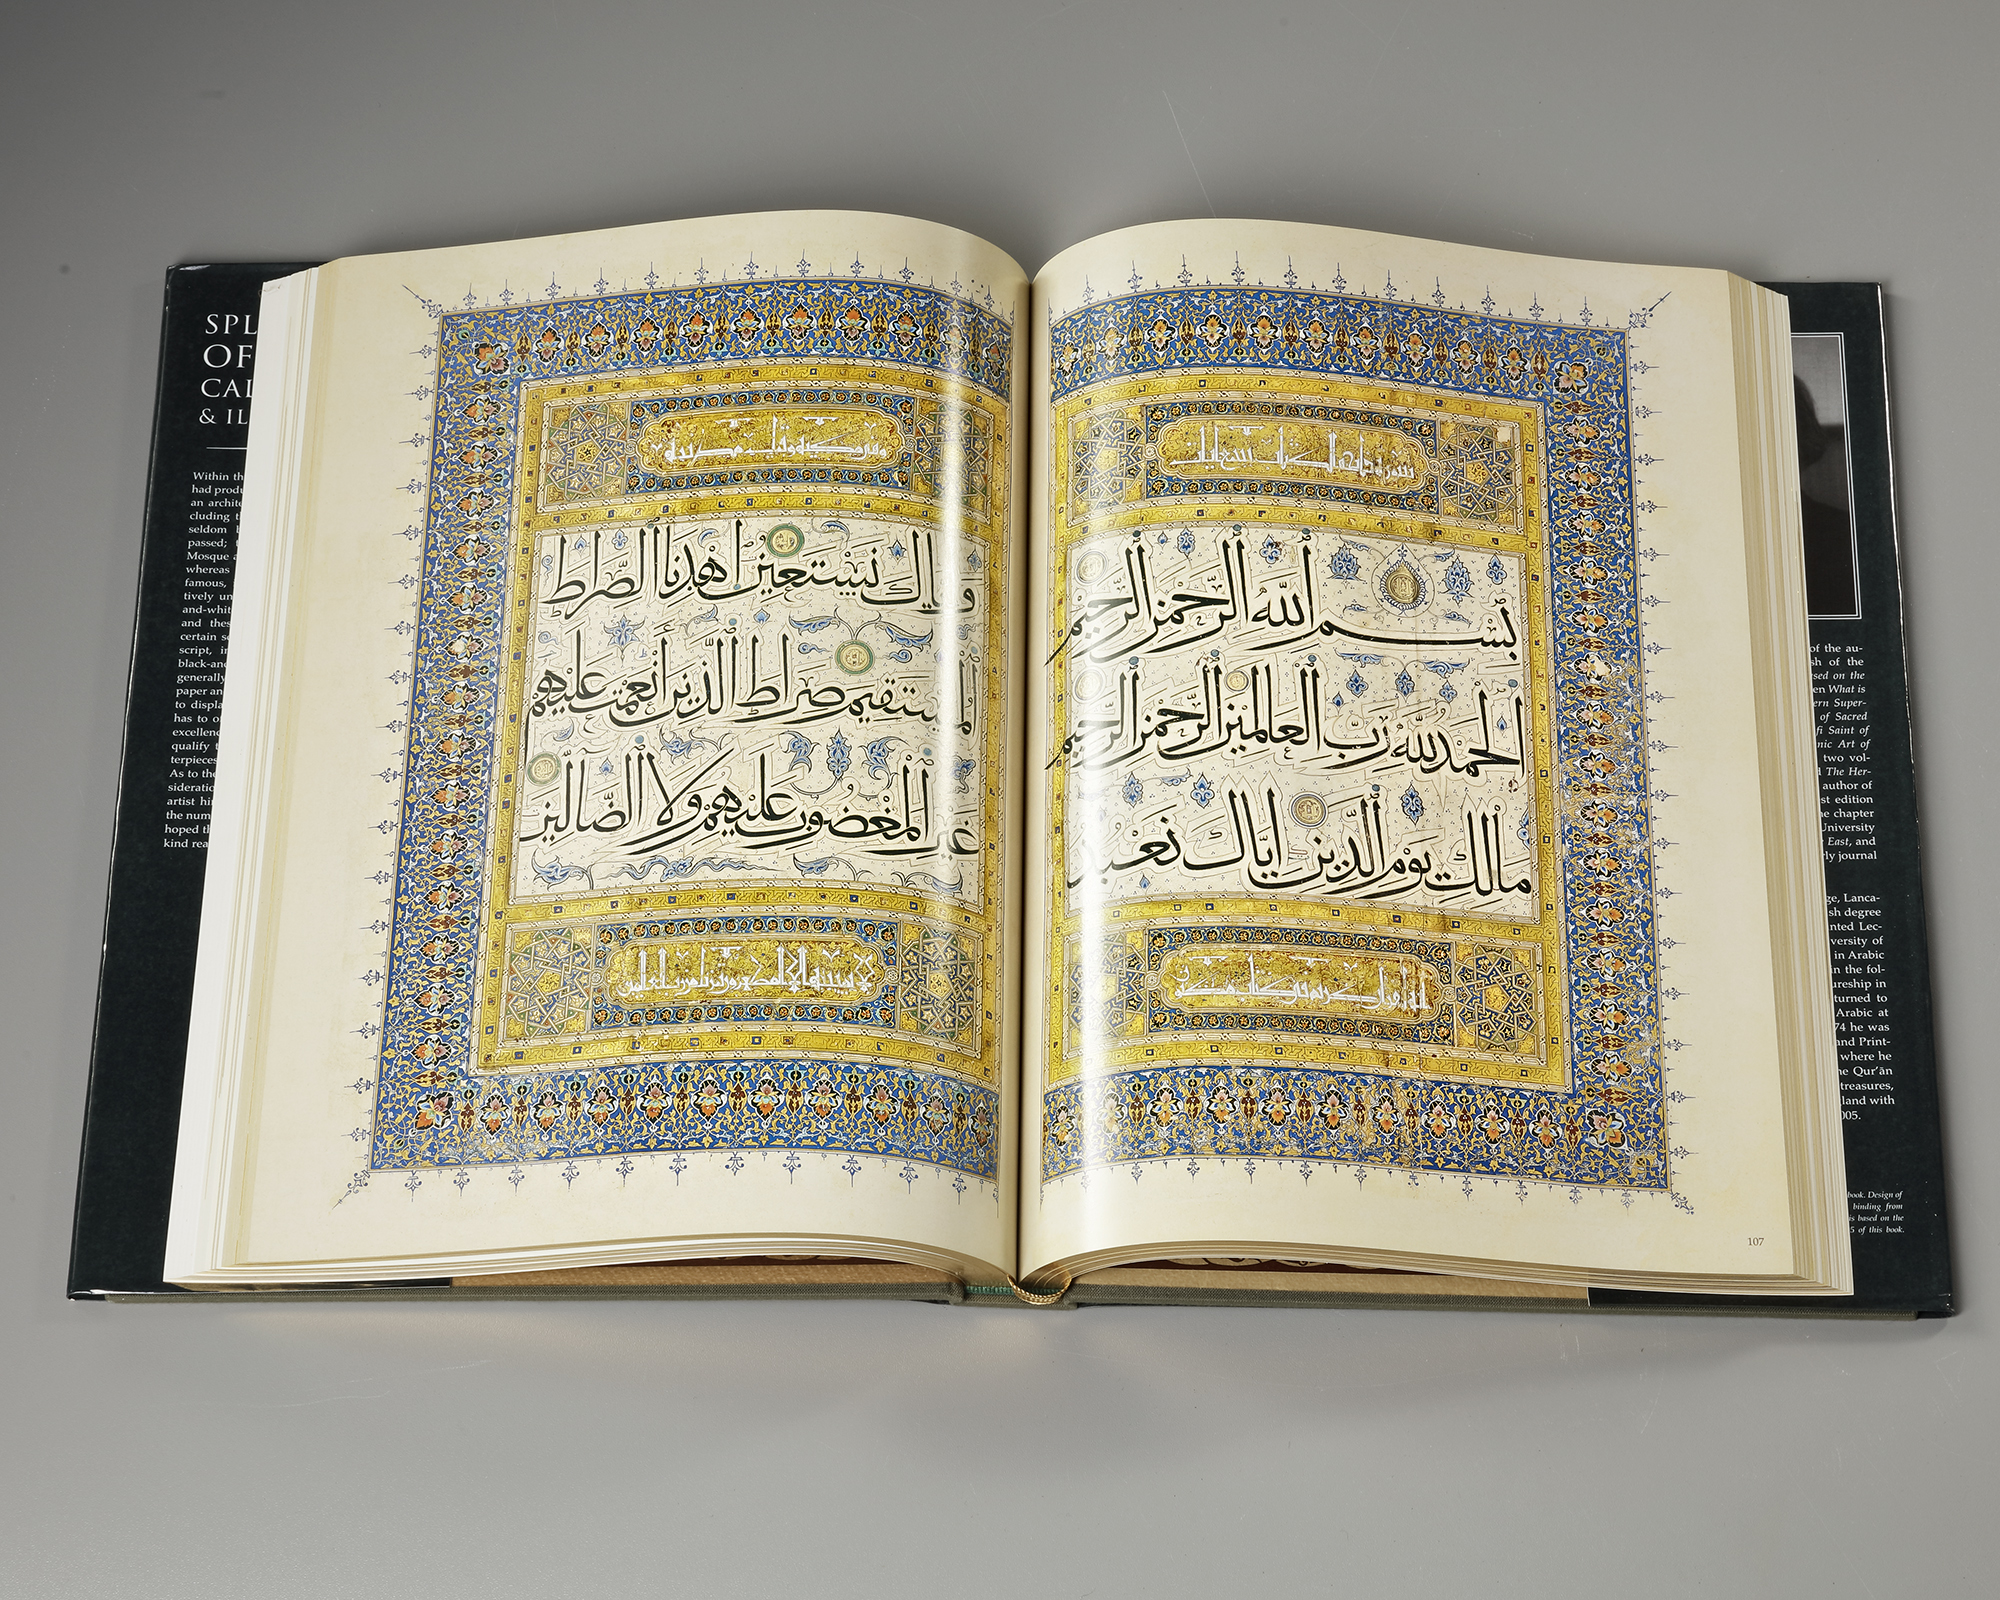 SPL
OF
CAL
& IL
Within th
had produ
an archite
cluding t
seldom b
passed; t
Mosque a
whereas
famous,
tively un
and-whit
and thes
certain se
script, i
black-and
generally
paper and
to displa
has to o
excellenc
qualify t
terpieces
As to the
sideratio
artist hi
the num
hoped th
kind rea
سورة فاتحة الكتاب سبع ايات
بسم الله الرحمن الرحيم
الحمد لله رب العالمين الرحمن الرحيم
مالك يوم الدين اياك نعبد
انه لقران كريم في كتاب مكنون
واياك نستعين اهدنا الصراط
المستقيم صراط الذين أنعمت عليهم
غير المغضوب عليهم ولا الضالين
لا يمسه الا المطهرون تنزيل من رب العالمين
107
of the au-
sh of the
sed on the
en What is
ern Super-
of Sacred
fi Saint of
nic Art of
two vol-
d The Her-
author of
st edition
he chapter
University
e East, and
rly journal
ge, Lanca-
sh degree
nted Lec-
versity of
in Arabic
n the fol-
ureship in
turned to
Arabic at
74 he was
and Print-
where he
he Qur'ān
treasures,
land with
005.
book. Design of
binding from
is based on the
5 of this book.